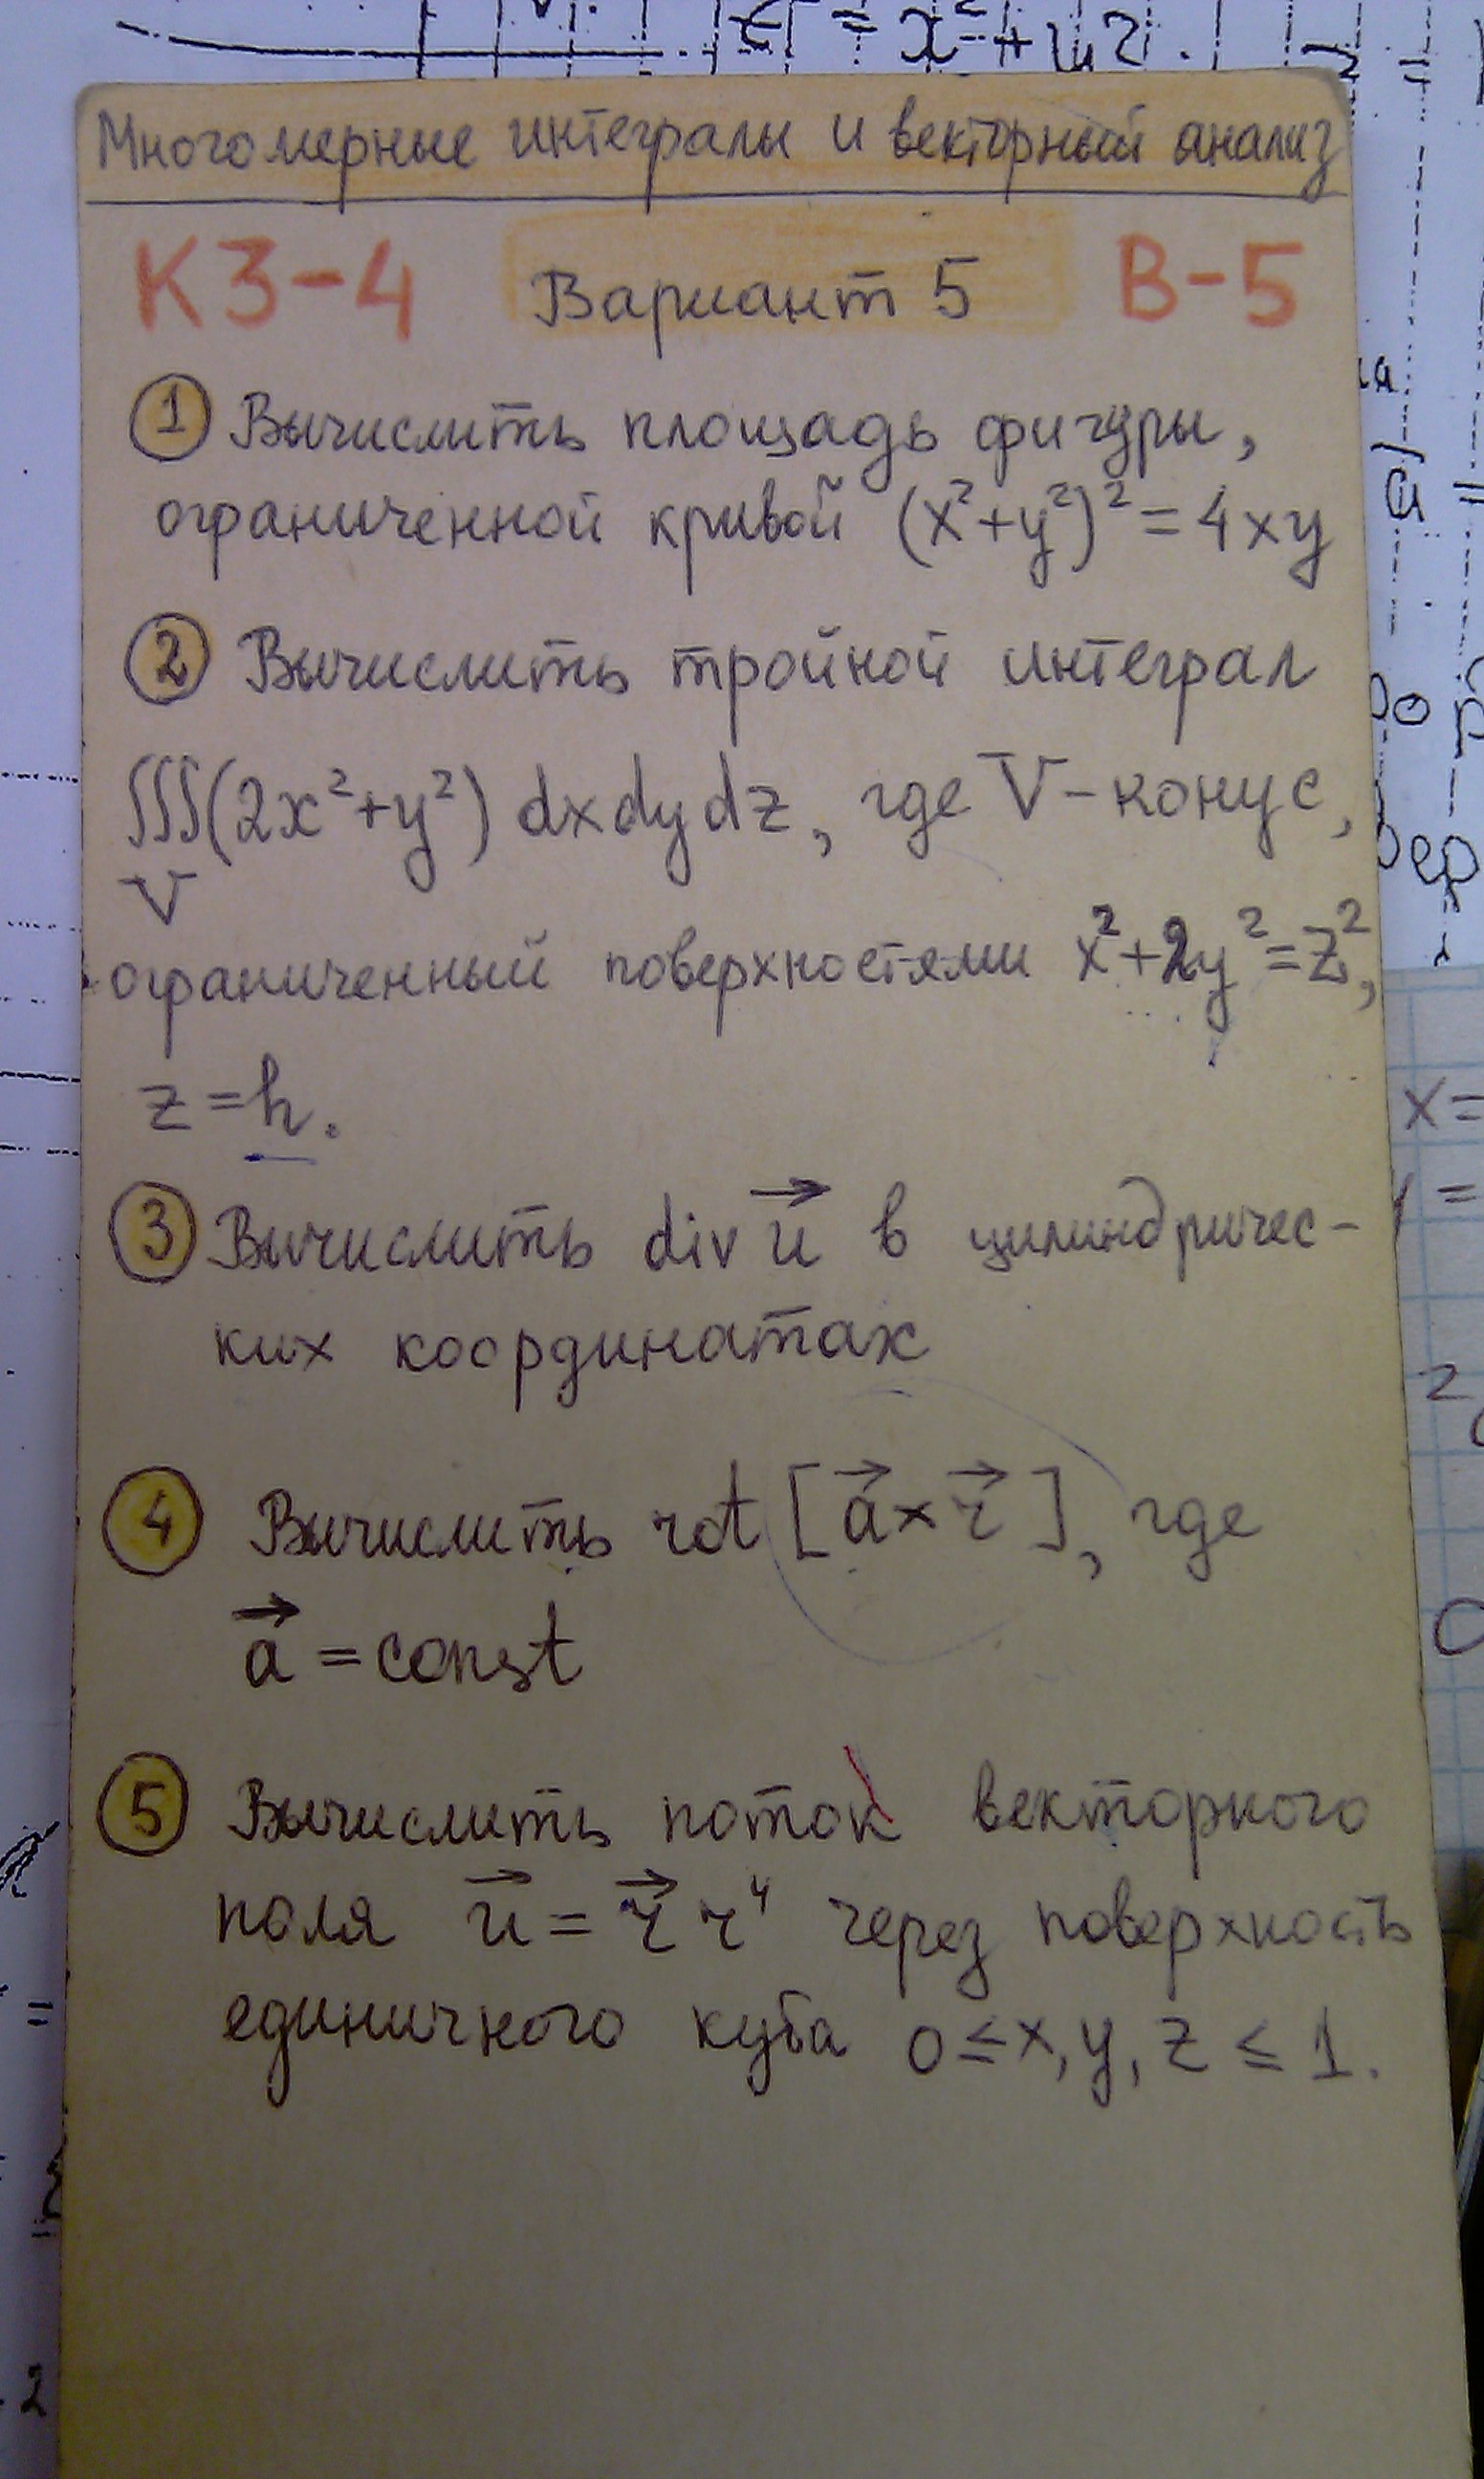 = x² + y².
Многомерные интегралы и векторный анализ
КЗ-4 Вариант 5 В-5
① Вычислить площадь фигуры,
ограниченной кривой (x²+y²)² = 4xy
② Вычислить тройной интеграл
∭(2x²+y²) dxdydz, где V-конус,
V
ограниченный поверхностями x²+2y²=z²,
z = h.
③ Вычислить div u⃗ в цилиндричес-
ких координатах
④ Вычислить rot [a⃗×r⃗], где
a⃗ = const
⑤ Вычислить поток векторного
поля u⃗ = r⃗ r⁴ через поверхность
единичного куба 0≤x,y,z≤1.
x=
2